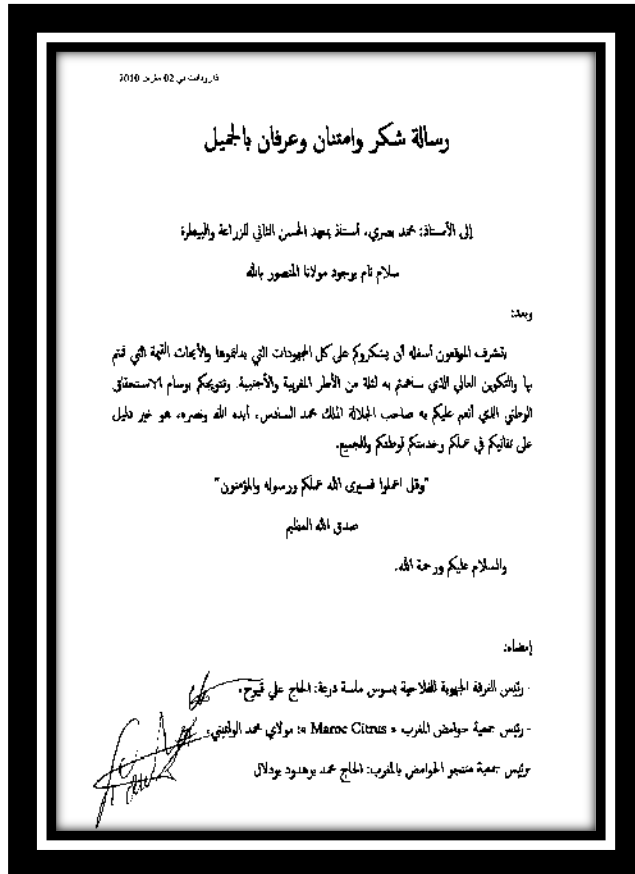 تارودانت في 02 مارس 2010
رسالة شكر وامتنان وعرفان بالجميل
إلى الأستاذ: محمد بصري، أستاذ بمعهد الحسن الثاني للزراعة والبيطرة
سلام تام بوجود مولانا المنصور بالله
وبعد:
يتشرف الموقعون أسفله أن يشكروكم على كل المجهودات التي بذلتموها والأبحاث القيمة التي قمتم
بها والتكوين العالي الذي ساهمتم به لثلة من الأطر المغربية والأجنبية. وتتويجكم بوسام الاستحقاق
الوطني الذي أنعم عليكم به صاحب الجلالة الملك محمد السادس، أيده الله ونصره، هو خير دليل
على تفانيكم في عملكم وخدمتكم لوطنكم وللجميع.
"وقل اعملوا فسيرى الله عملكم ورسوله والمؤمنون"
صدق الله العظيم
والسلام عليكم ورحمة الله.
إمضاء:
- رئيس الغرفة الجهوية للفلاحية بسوس ماسة درعة: الحاج علي قيوح.
- رئيس جمعية حوامض المغرب « Maroc Citrus »: مولاي محمد
ورئيس جمعية منتجو الحوامض بالمغرب: الحاج محمد بوهدود بودلال